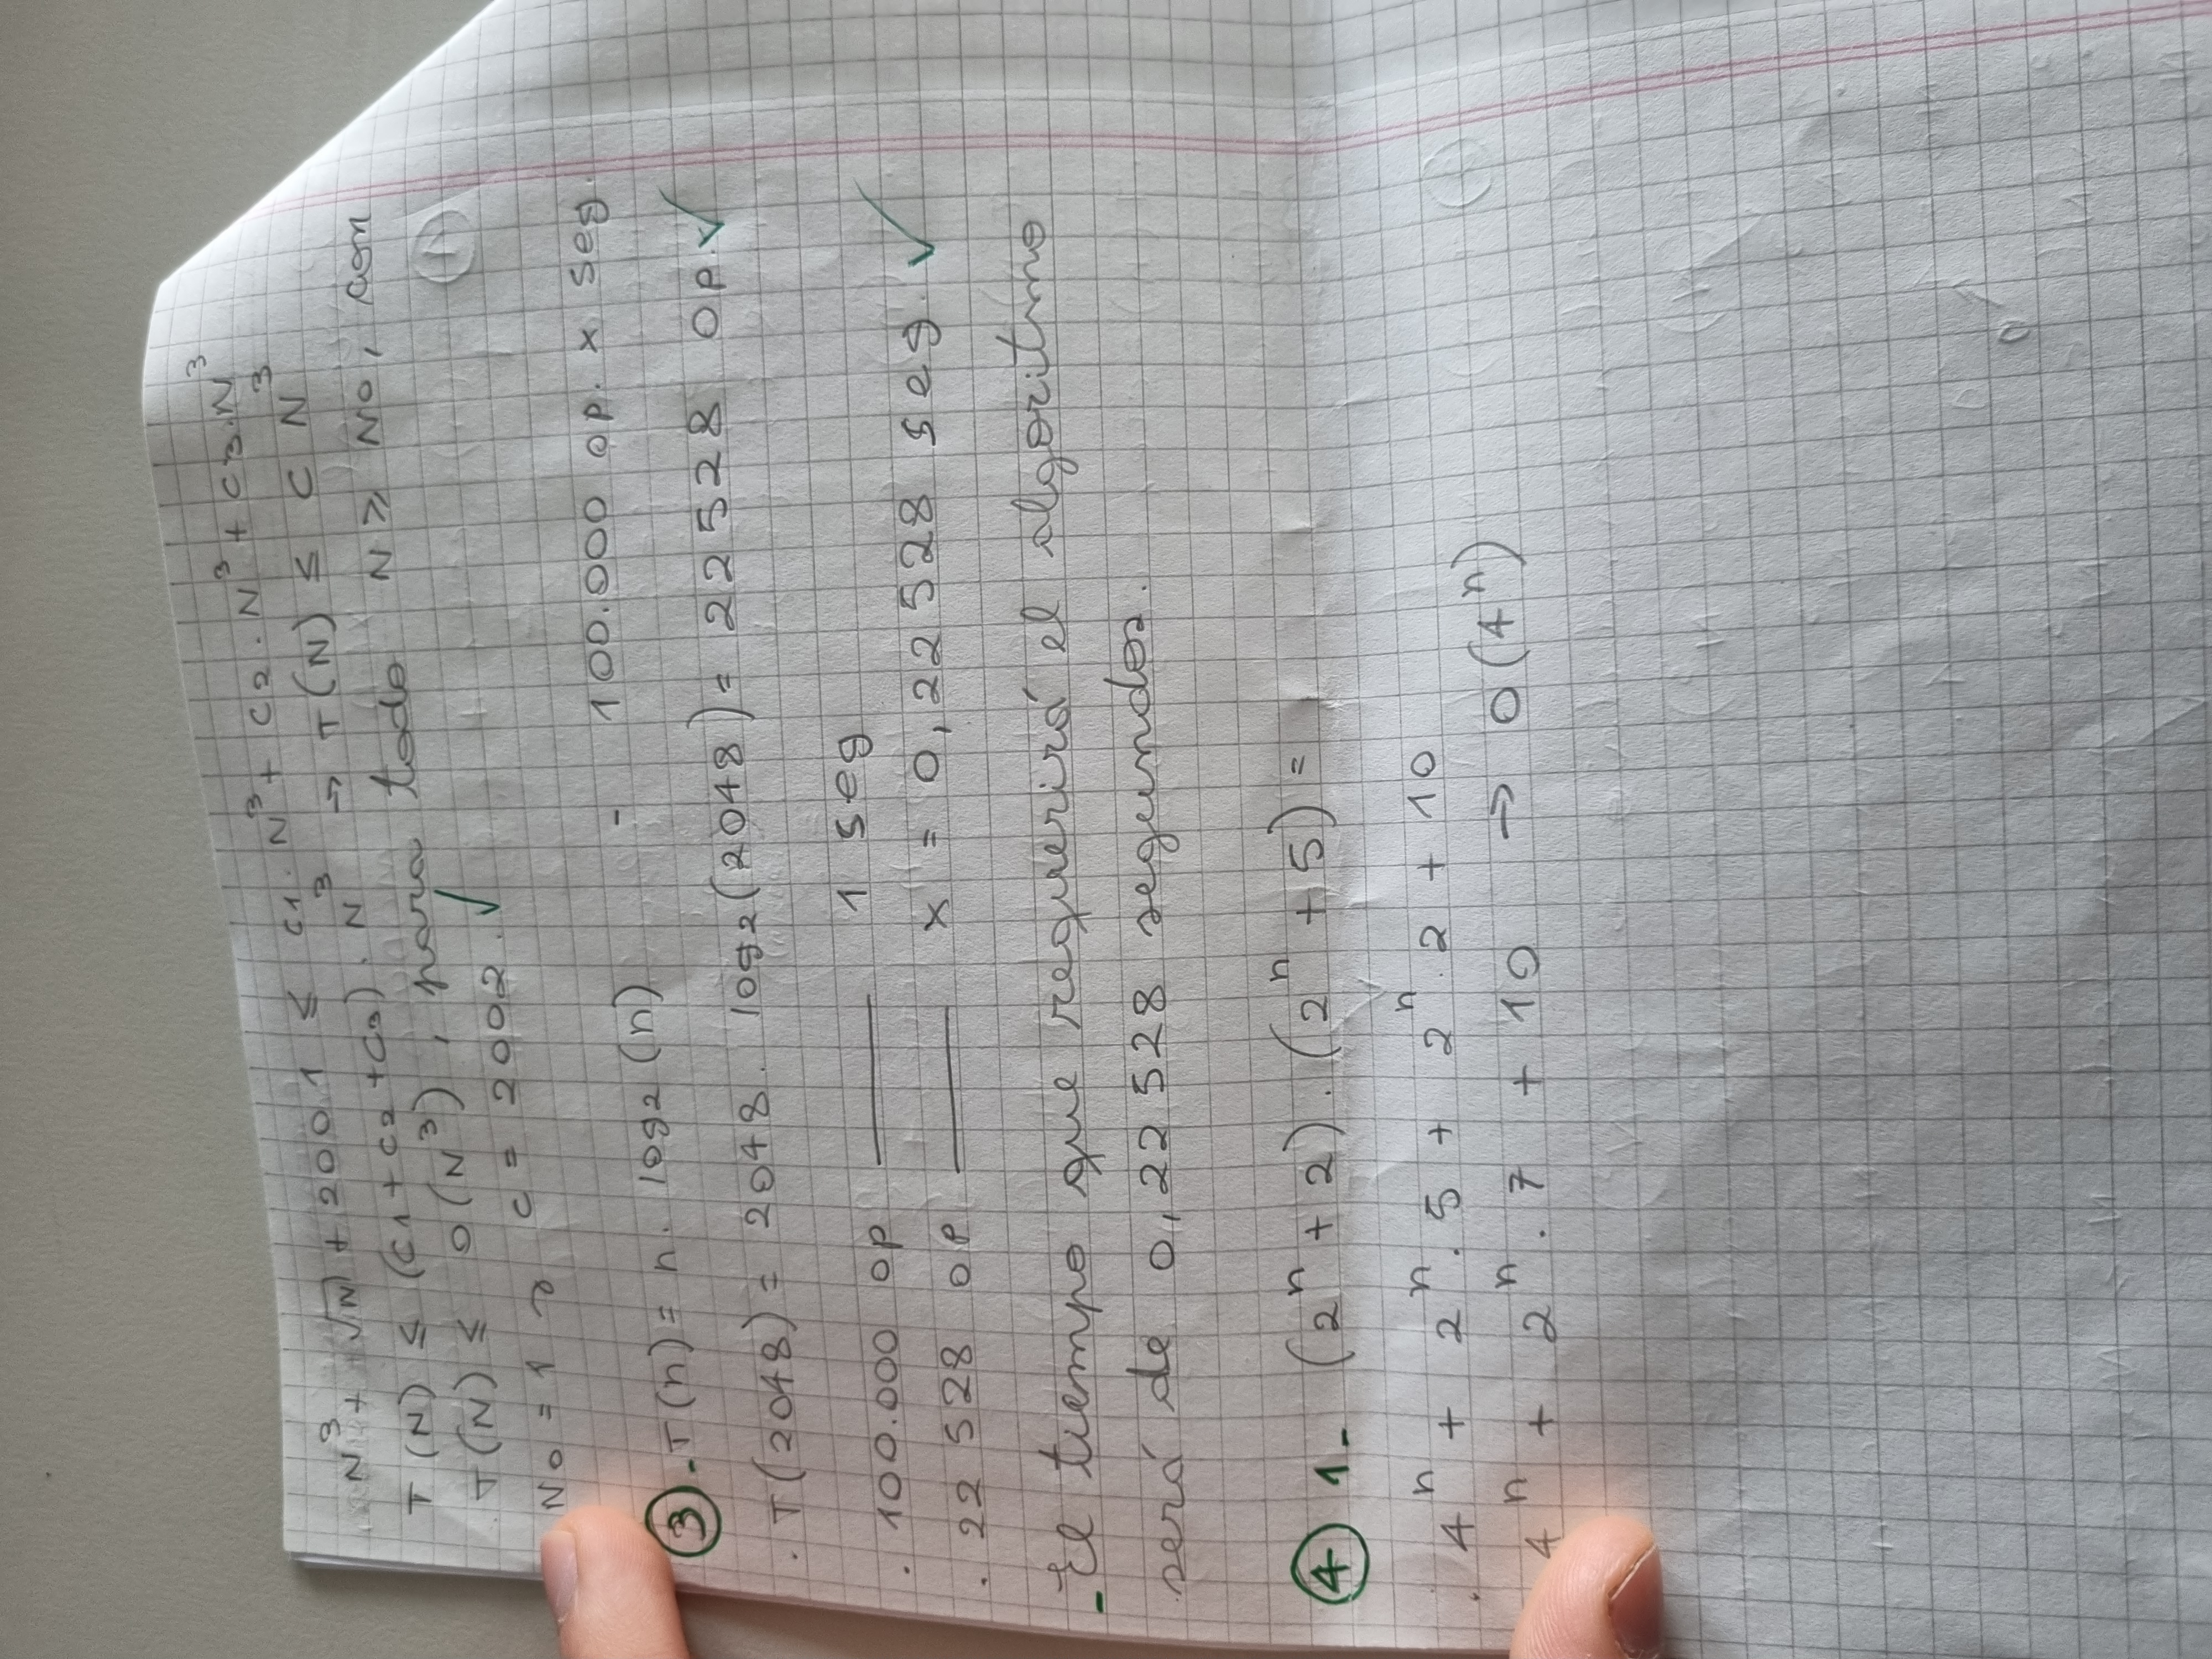 N³ + √N + 2001 ≤ c1 . N³ + c2 . N³ + c3 . N³
T(N) ≤ (c1 + c2 + c3) . N³ → T(N) ≤ C N³
T(N) ≤ O(N³), para todo N ≥ N0, con
N0 = 1 y c = 2002. ✓
③.- T(n) = n . log2(n) - 100.000 op. x seg.
. T(2048) = 2048 . log2(2048) = 22528 op. ✓
. 100.000 op —— 1 seg
. 22528 op —— x = 0,22528 seg. ✓
- El tiempo que requerirá el algoritmo
será de 0,22528 segundos.
④ 1- (2ⁿ + 2) . (2ⁿ + 5) =
. 4ⁿ + 2ⁿ . 5 + 2ⁿ . 2 + 10
4ⁿ + 2ⁿ . 7 + 10 → O(4ⁿ)